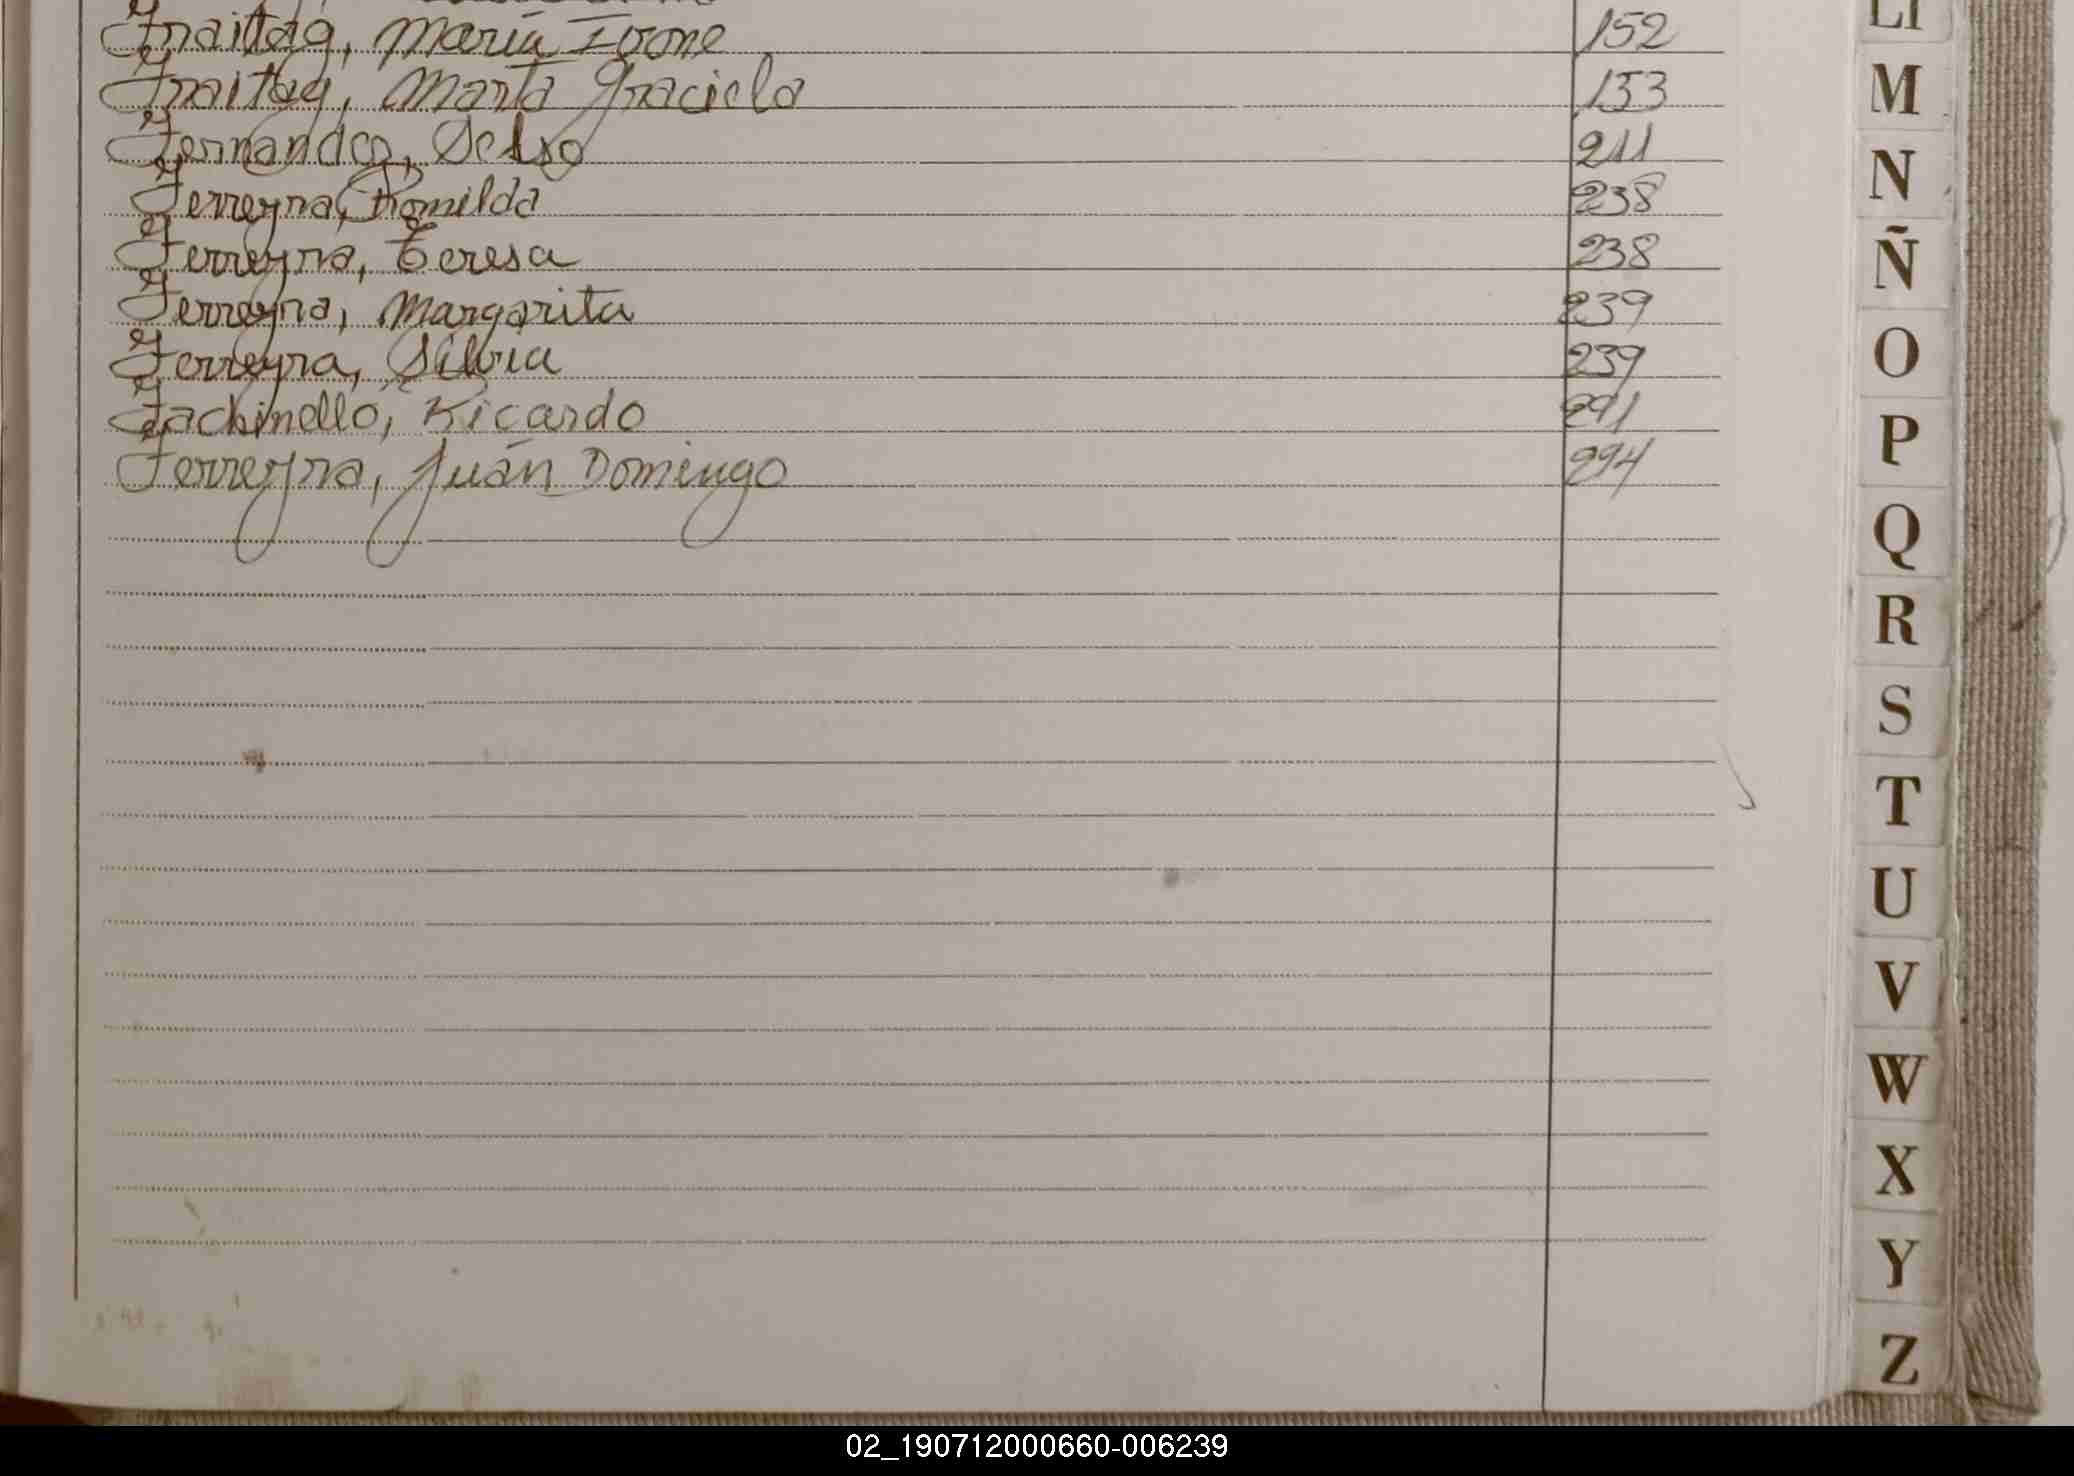 Fraittag, María Ivone 152
Fraittag, Marta Graciela 153
Fernandez, Selso 211
Ferreyra, Romilda 238
Ferreyra, Teresa 238
Ferreyra, Margarita 239
Ferreyra, Silvia 239
Fachinello, Ricardo 291
Ferreyra, Juán Domingo 294
Ll
M
N
Ñ
O
P
Q
R
S
T
U
V
W
X
Y
Z
02_190712000660-006239